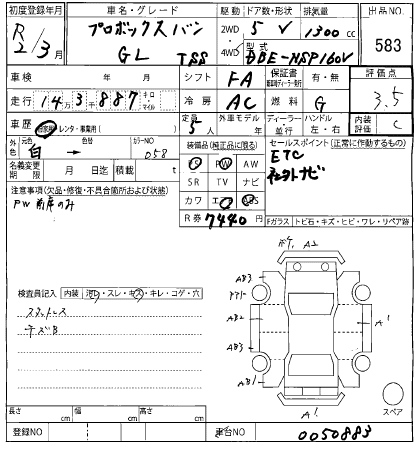 初度登録年月 車名・グレード 駆動 ドア数・形状 排気量 出品NO.
R2/3月 プロボックスバン 2WD 5 V 1300cc 583
GL TSS 4WD 型式 DBE-NSP160V
車検 年 月 シフト FA 保証書 有・無 評価点
走行 14万3千887 キロ マイル 冷房 AC 燃料 G 3.5
車歴 自家用・レンタ・事業用( ) 定員 5人 外車モデル 年 ディーラー 並行 ハンドル 左・右 内装評価 C
外色 元色 白 → 色替 カラーNO 058 装備品(純正品に限る) セールスポイント(正常に作動するもの)
名義変更期限 月 日 積載 t PS PW AW ETC
注意事項(欠品・修復・不具合箇所および状態) SR TV ナビ 社外ナビ
PW前席のみ カワ エアB ABS
R券 7440円 Fガラス トビ石・キズ・ヒビ・ワレ・リペア跡
検査員記入 内装 汚レ・スレ・キズ・キレ・コゲ・穴
スタットレス
キズB
A2
AB3
AB2
AB3
AB1
A1
A1
スペア
長さ cm 幅 cm 高さ cm
登録NO 車台NO 0050883